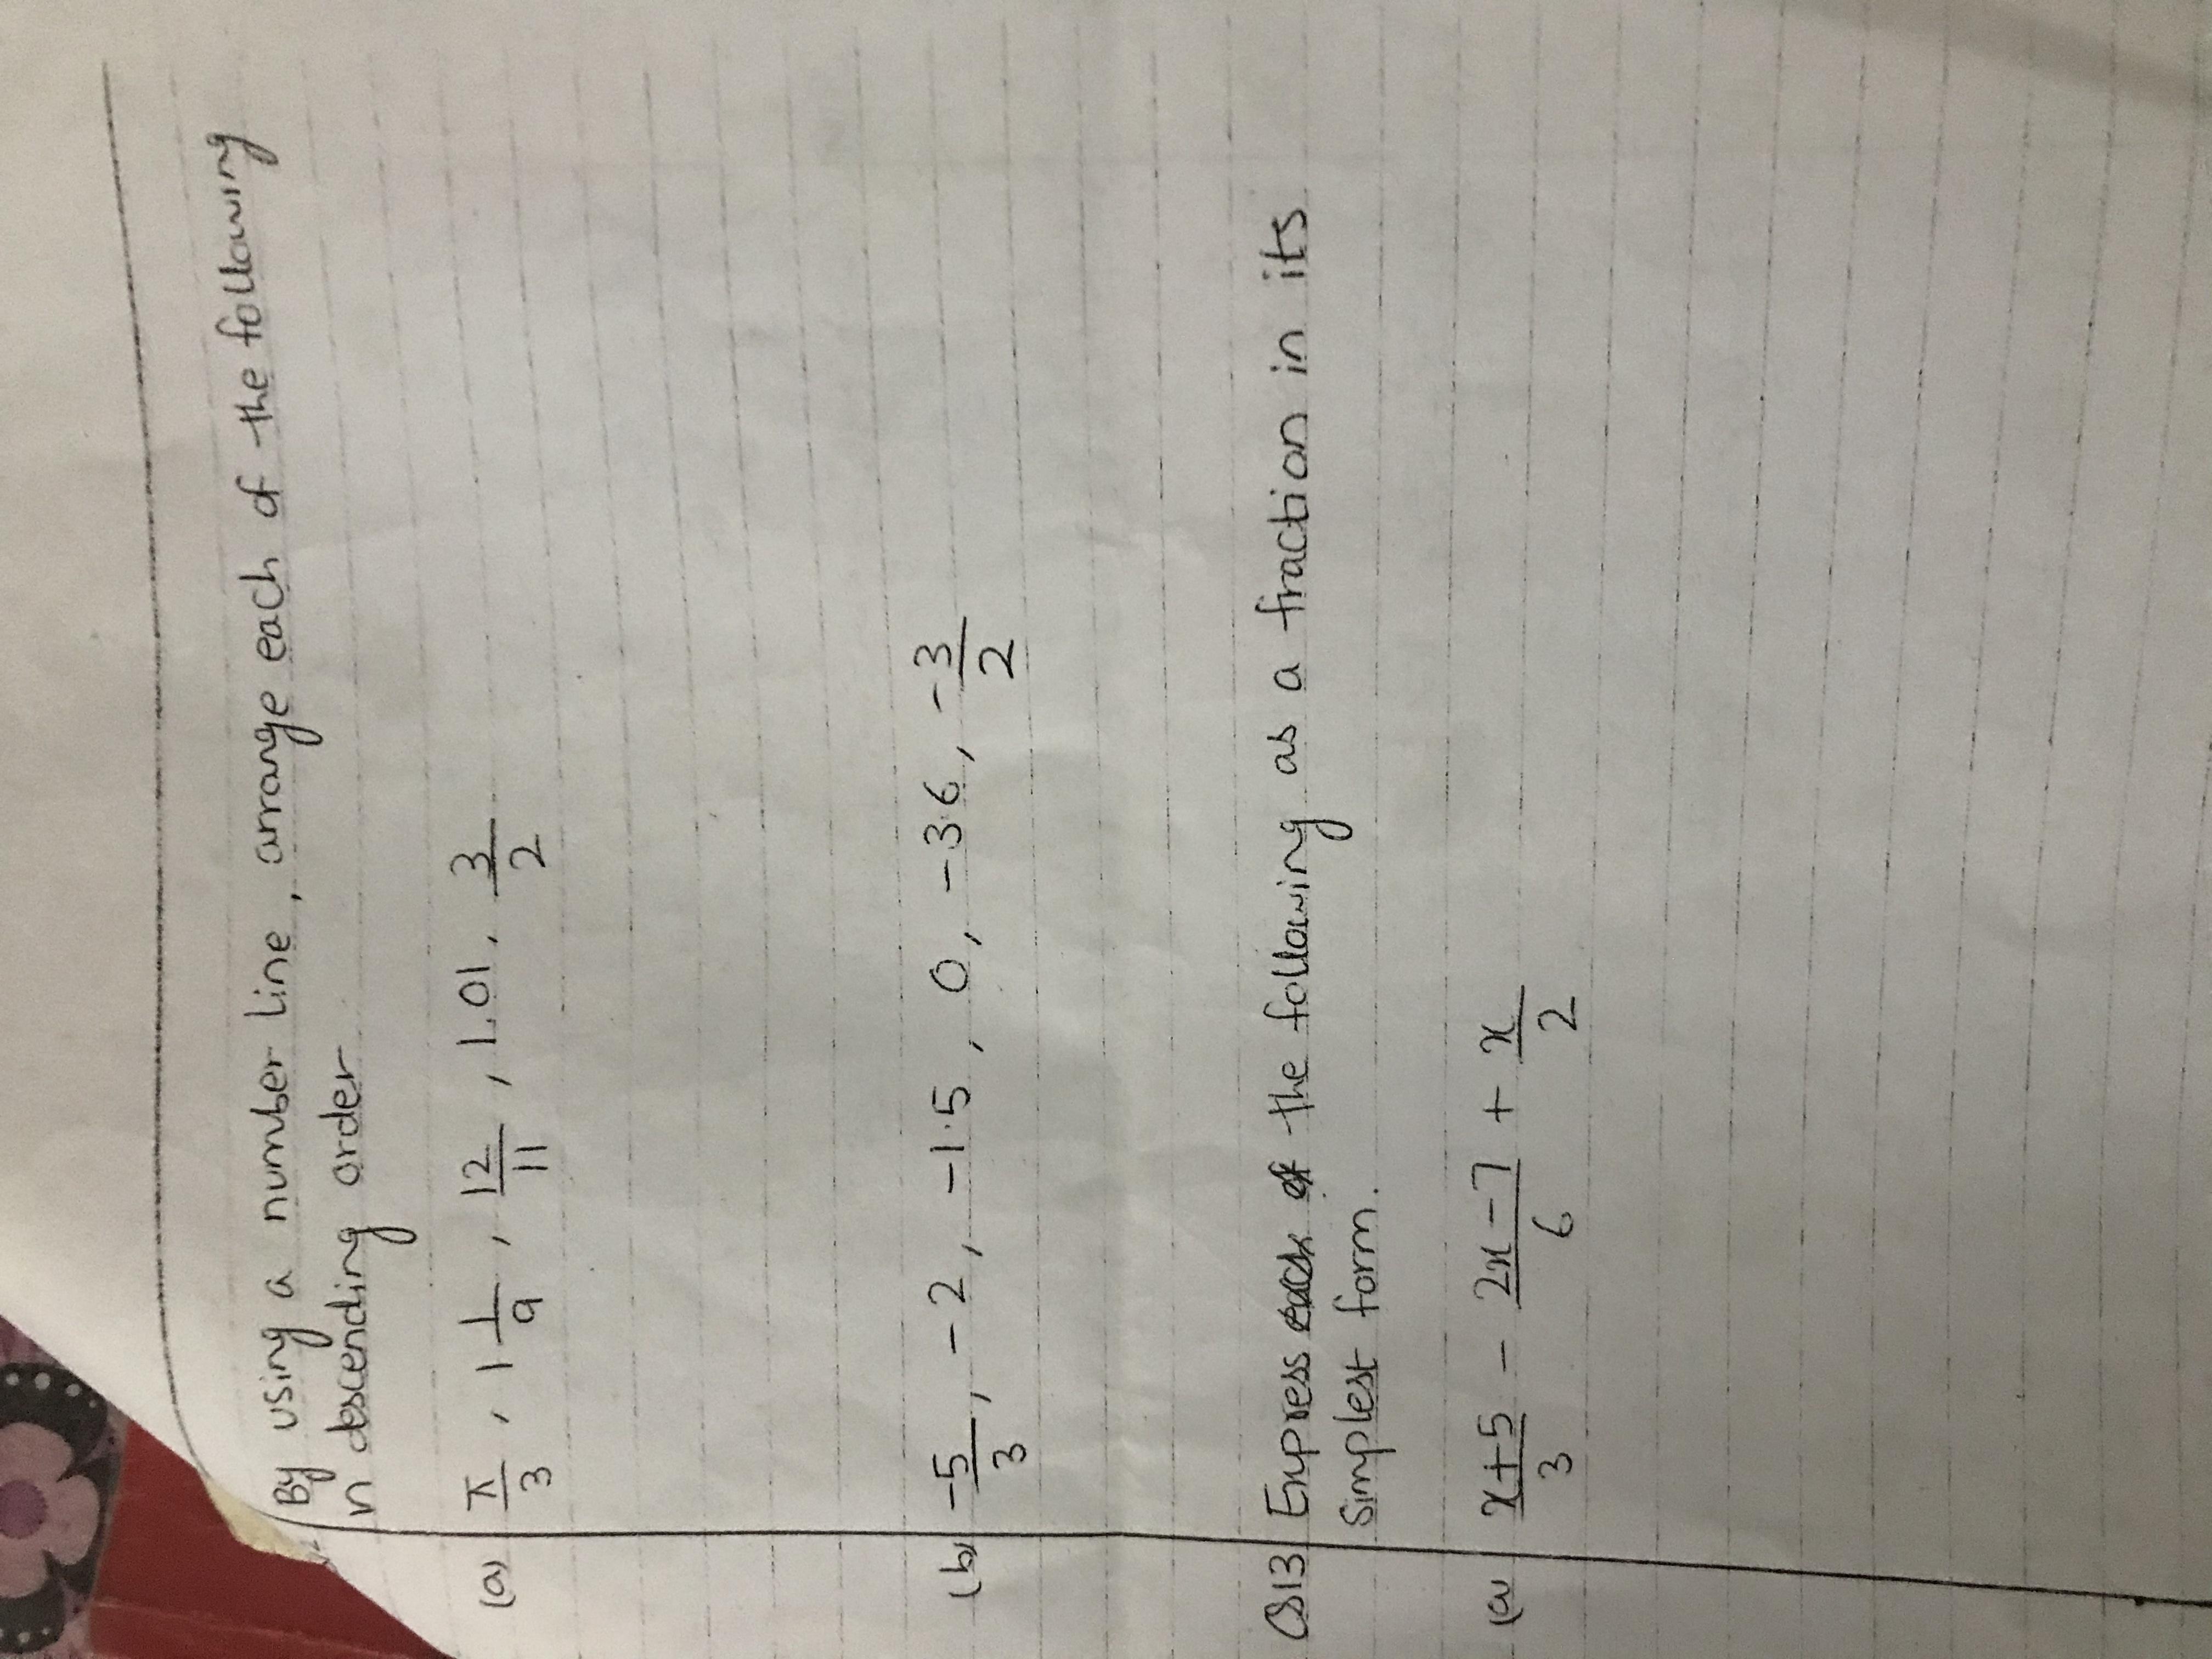 By using a number line, arrange each of the following
in descending order
(a) π/3, 1 1/9, 12/11, 1.01, 3/2
(b) -5/3, -2, -1.5, 0, -3.6, -3/2
Q13 Express each of the following as a fraction in its
simplest form.
(a) x+5/3 - 2x-7/6 + x/2